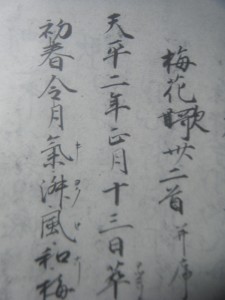 梅花歌卅二首并序
天平二年正月十三日萃
初春令月氣淑風和梅